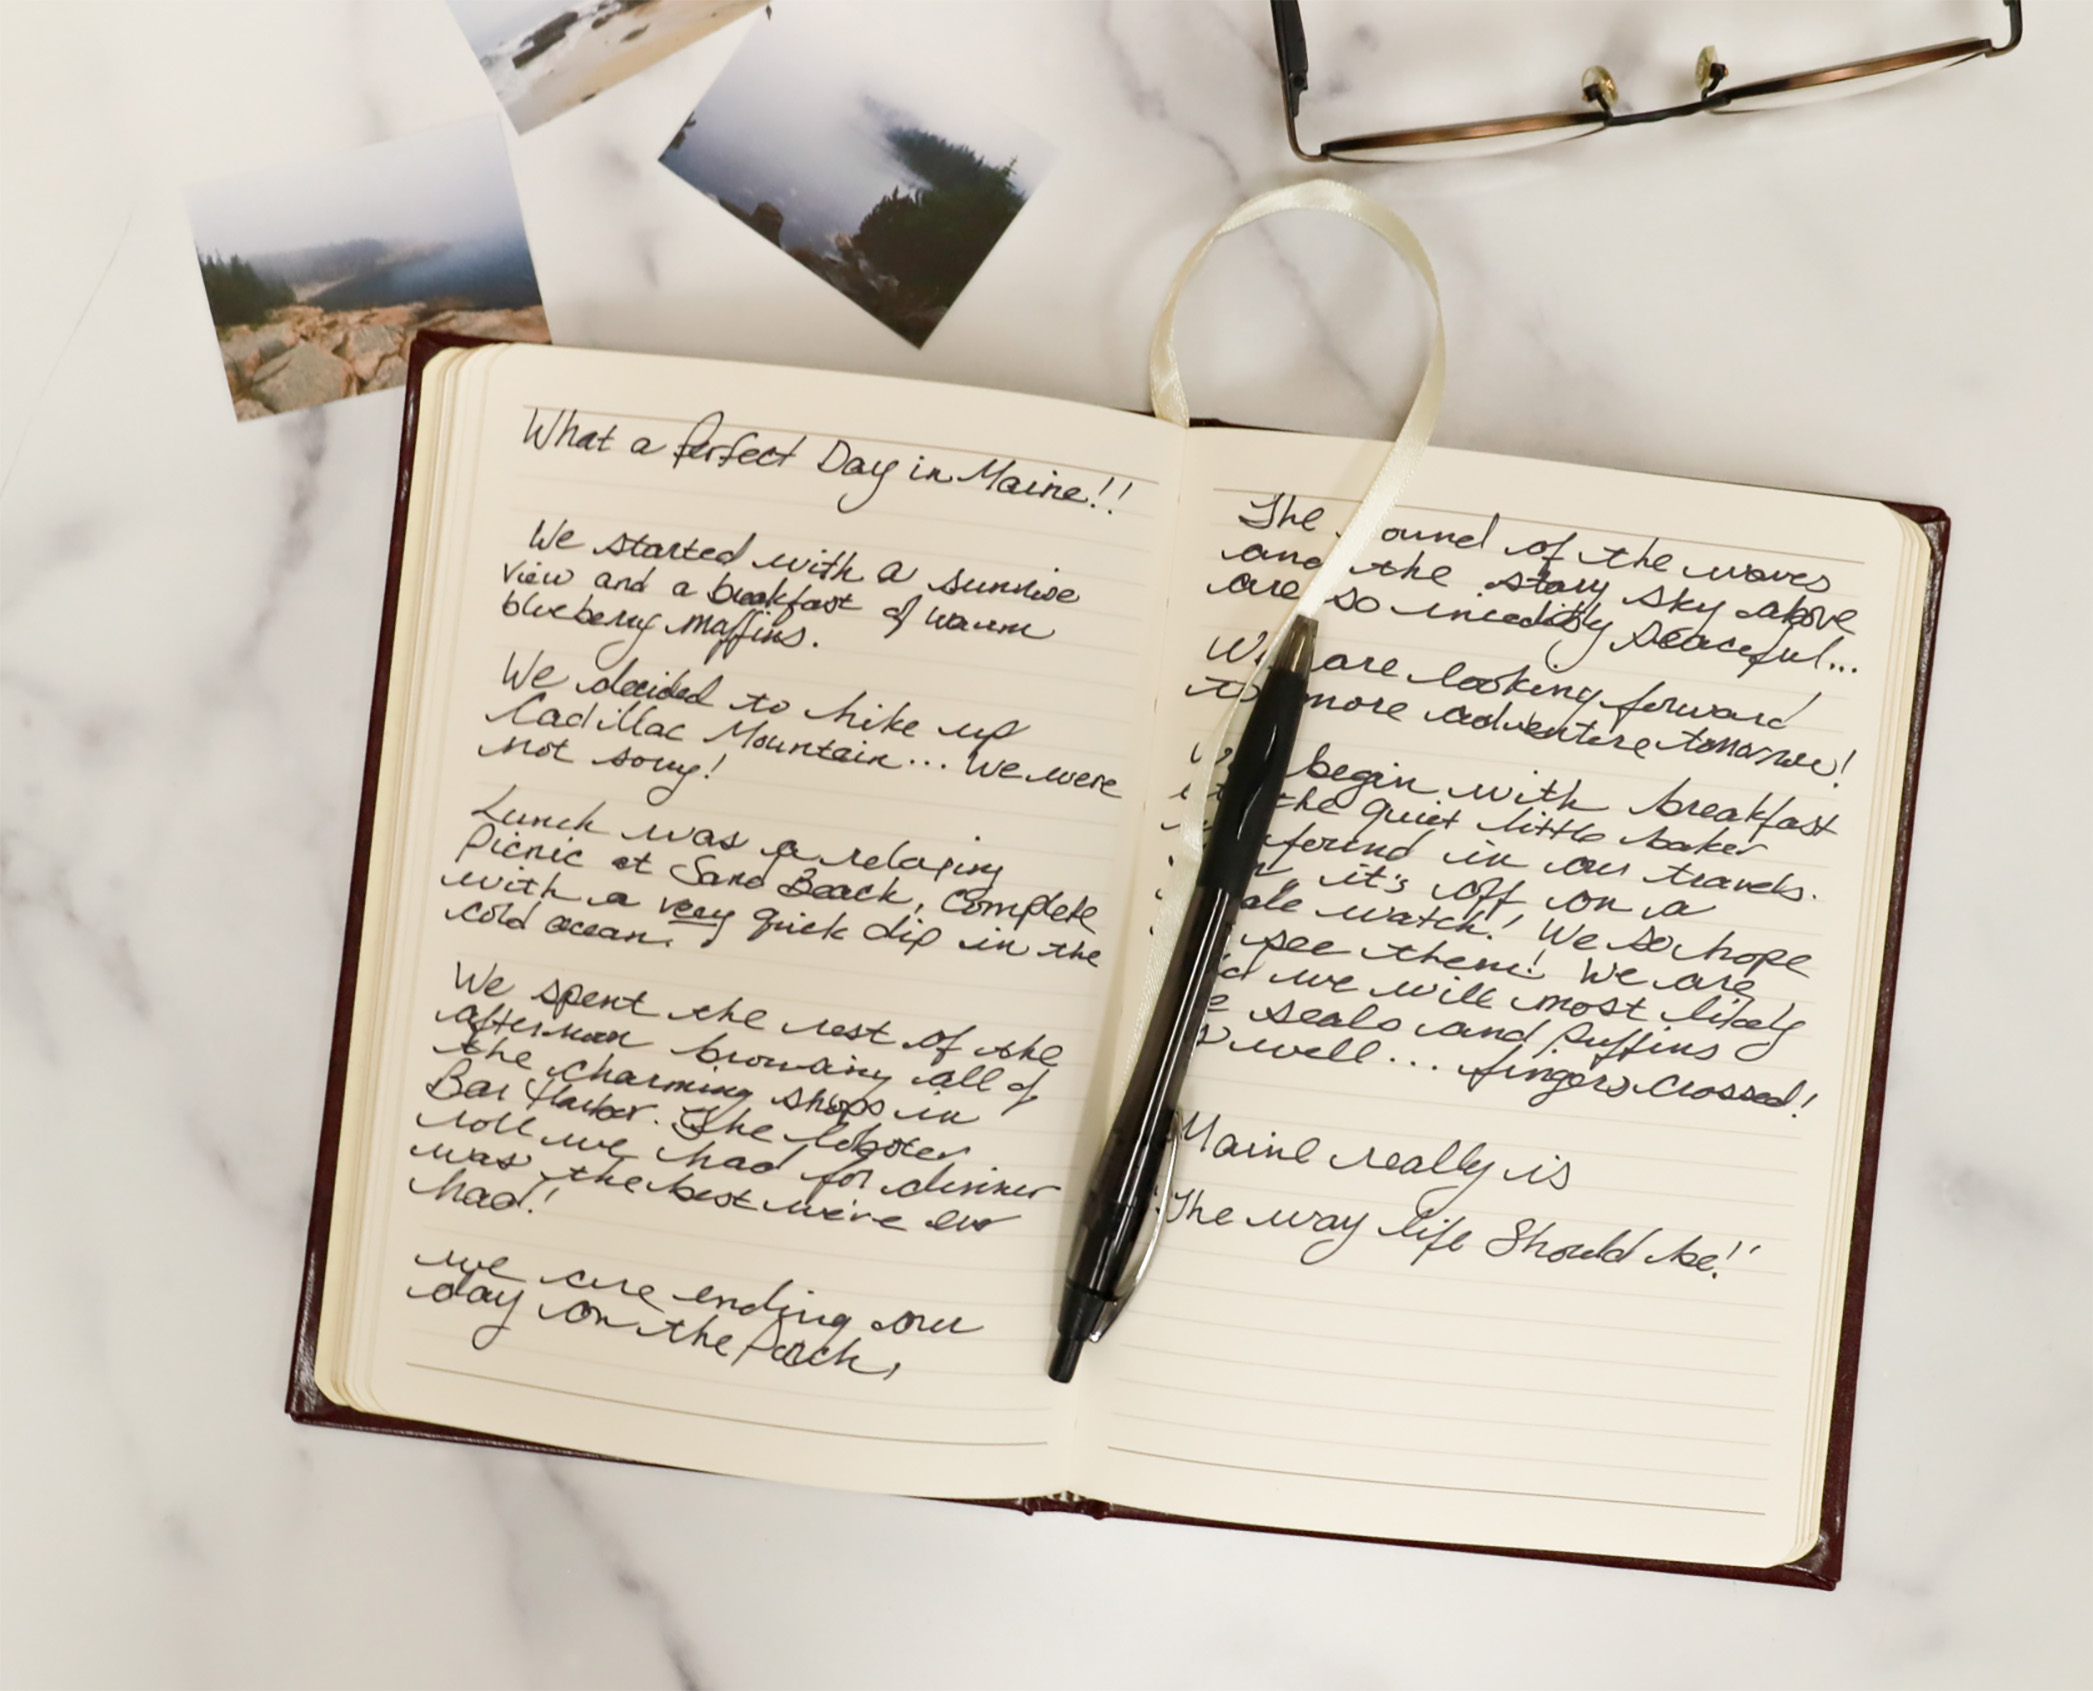 What a Perfect Day in Maine!!
We started with a sunrise
view and a breakfast of warm
blueberry muffins.
We decided to hike up
Cadillac Mountain... We were
not sorry!
Lunch was a relaxing
Picnic at Sand Beach, Complete
with a very quick dip in the
cold ocean.
We spent the rest of the
afternoon browsing all of
the charming shops in
Bar Harbor. The lobster
roll we had for dinner
was the best we've ever
had!
we are ending our
day on the Porch,
The ound of the waves
and the stary sky above
are so incredibly peaceful...
We are looking forward
to more adventure tomorrow!
begin with breakfast
the quiet little baker
found in our travels.
it's off on a
ale watch! We so hope
see them! We are
we will most likely
seals and Puffins
well... fingers crossed!
Maine really is
"The way life Should be!"